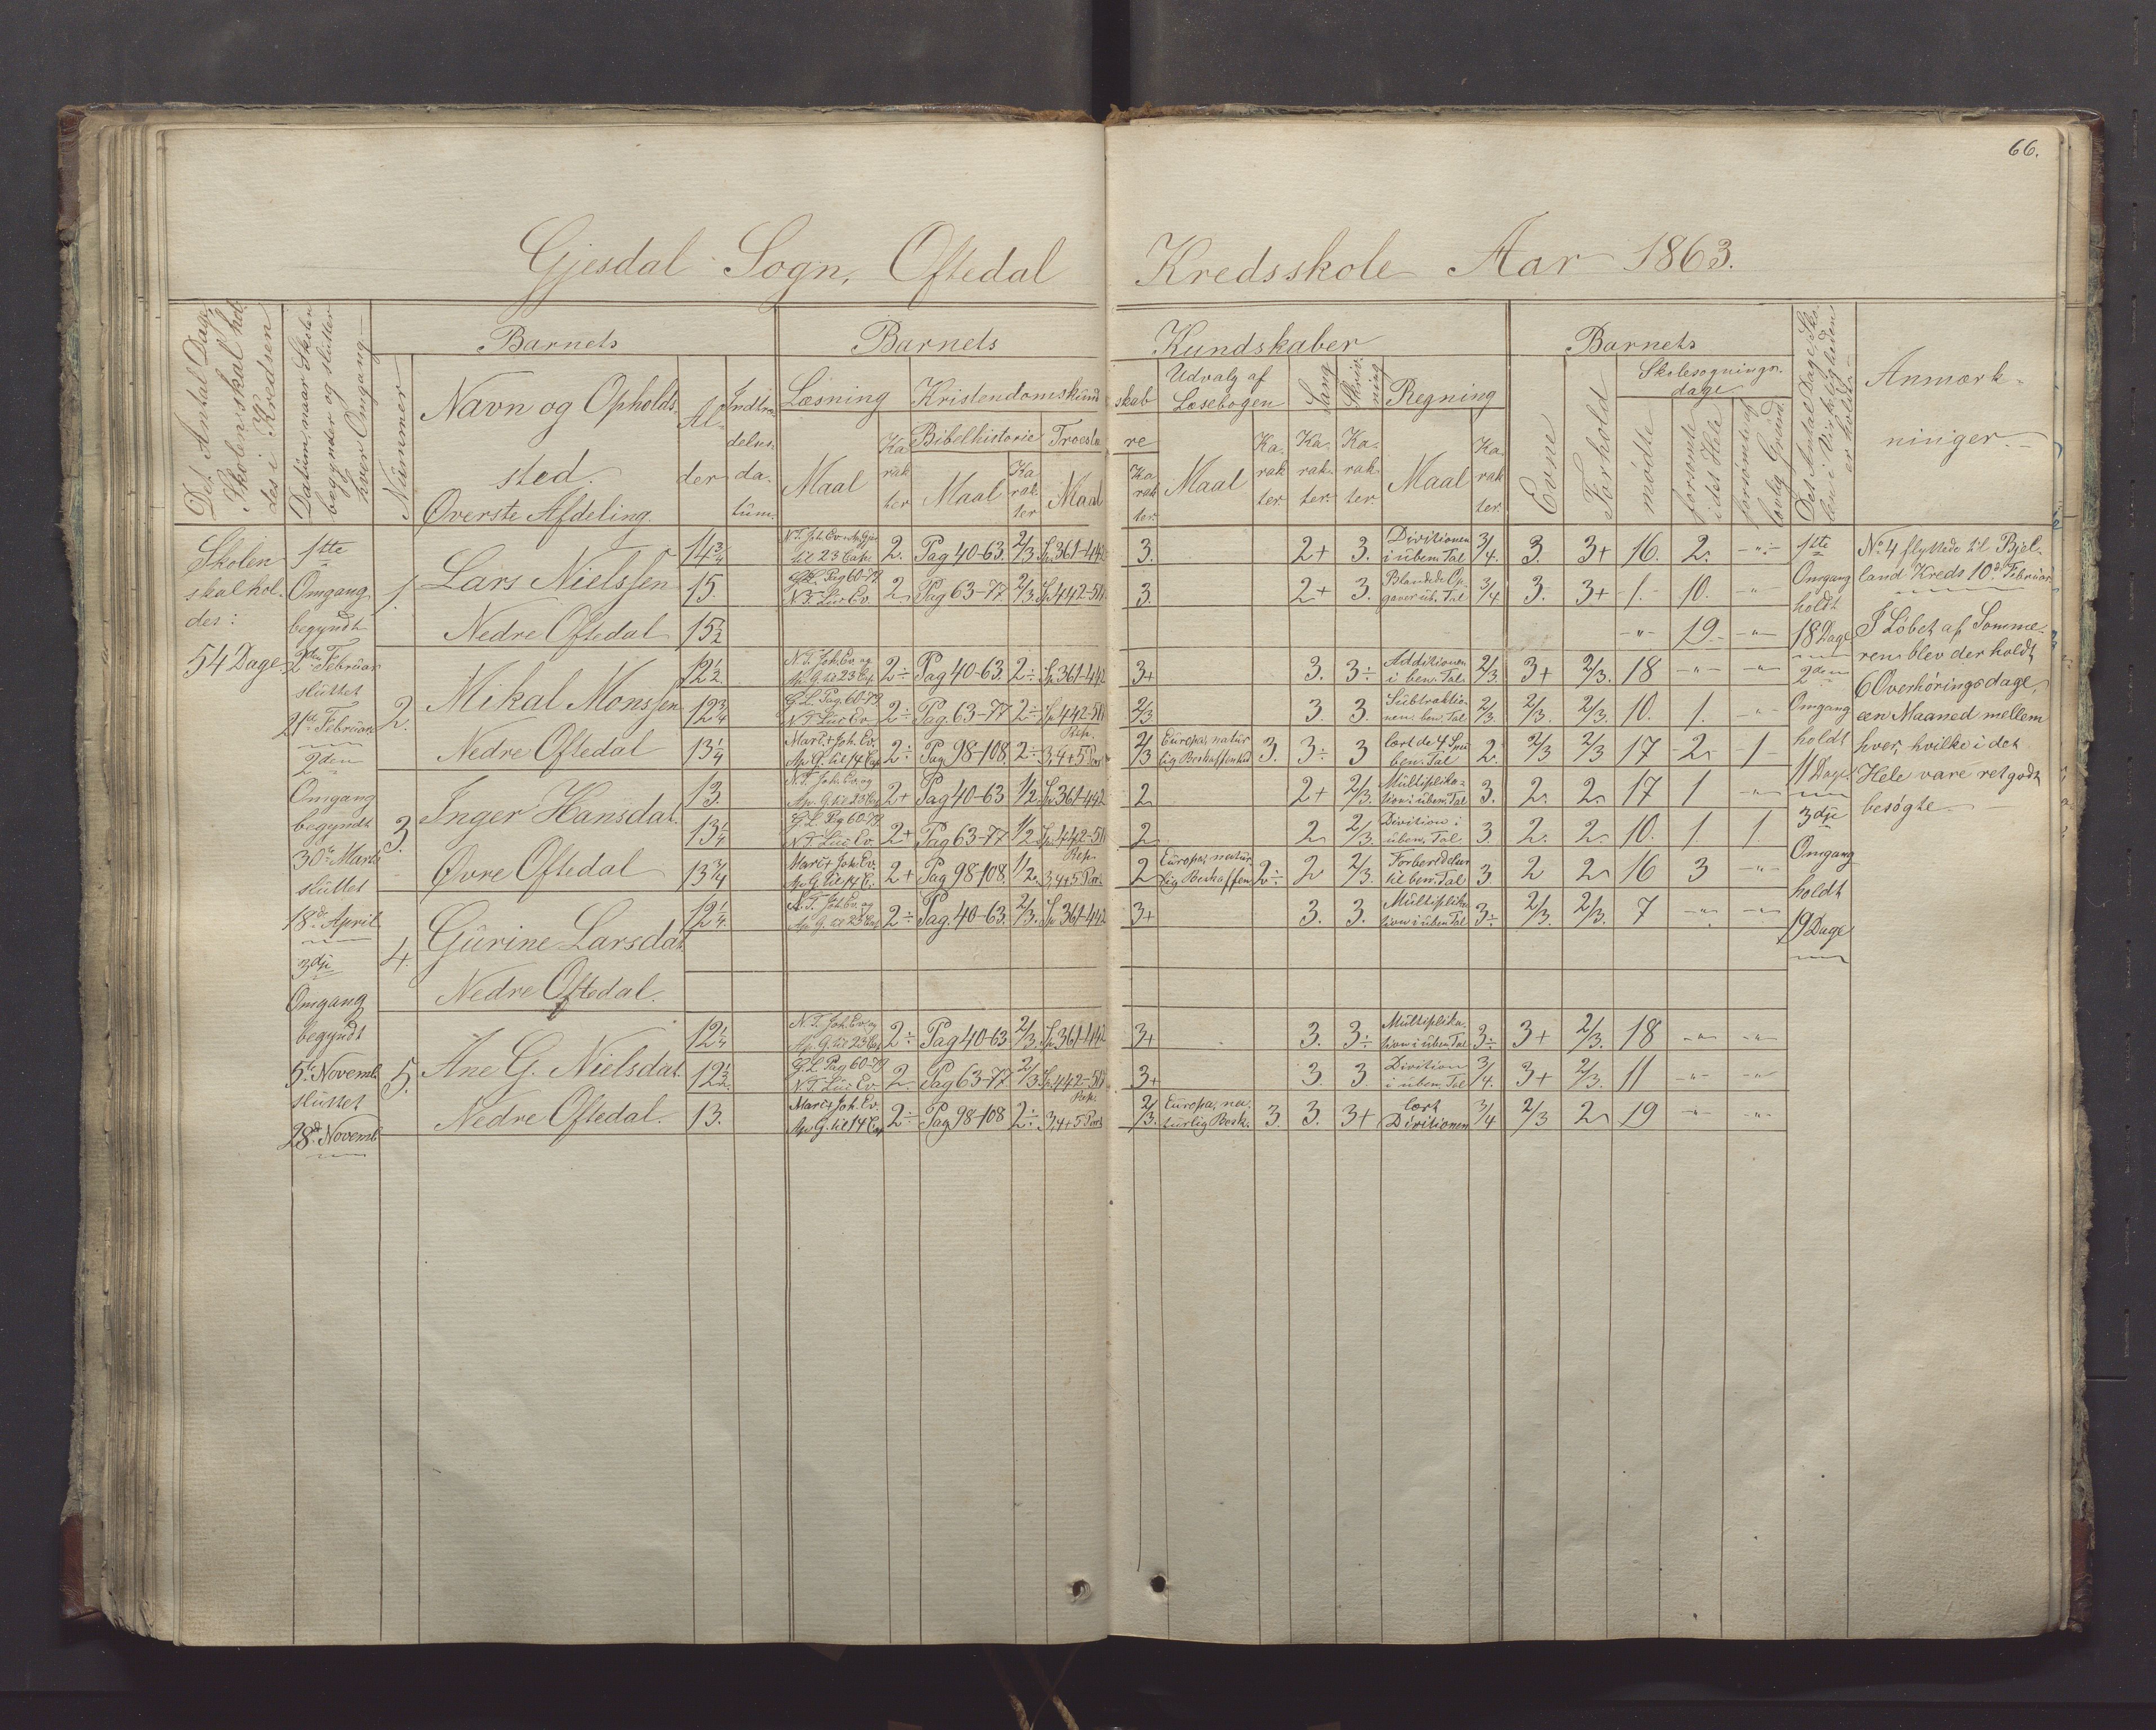 66.
Gjesdal Sogn, Oftedal Kredsskole Aar 1863.
Det Antal Dage, Skolen skal holdes i Kredsen
Datum, naar Skolen begynder og slutter hver Omgang
Nummer
Barnets
Navn og Opholdssted.
Øverste Afdeling.
Alder
Indtrædelsesdatum.
Barnets Kundskaber
Læsning
Maal
Karakter
Kristendomskundskab
Bibelhistorie
Maal
Karakter
Troeslære
Maal
Karakter.
Udvalg af Læsebogen
Maal
Karakter.
Sang
Karakter.
Skrivning
Karakter.
Regning
Maal
Karakter.
Barnets
Evne
Forhold
Skolesøgningsdage
mødte
forsømte i det Hele
forsømte af lovlig Grund.
Det Antal Dage, Skolen i Virkeligheden er holdt
Anmærkninger.
Skolen
skal hol-
des:
54 Dage.
1ste
Omgang
begyndt
2den Februar
sluttet
21de Februar
2den
Omgang
begyndt
30te Marts
sluttet
18de April
3dje
Omgang
begyndt
5te Novemb.
sluttet
28de Novemb.
1. Lars Nielssen
Nedre Oftedal
14 3/4 N.T. Joh. Ev. og Ap. Gjer. til 23 Cap. 2. Pag 40-63. 2/3 Sp. 361-442 3. 2+ 3. Divitionen i uben. Tal 3/4. 3. 3+ 16. 2. -"-
15. G.L. Pag 60-79. N.T. Luc. Ev. 2 Pag 63-77. 2/3. Sp. 442-511 3. 2+ 3. Blandede Opgaver ub. Tal 3/4 3. 3+ 1. 10. "
15 1/2 -"- 19. -"-
2. Mikal Monssen
Nedre Oftedal
12 1/2 N.T. Joh. Ev. og Ap. G. til 23 Cap. 2÷ Pag 40-63. 2÷ Sp. 361-442 3+ 3. 3÷ Additionen i ben. Tal. 2/3. 3+ 2/3. 18 -"- -"-
12 3/4 G.L. Pag. 60-79. N.T. Luc Ev. 2÷ Pag. 63-77 2÷ Sp. 442-511 2/3 3. 3. Subtraktionen i ben. Tal 2/3. 2/3. 2/3. 10. 1. "
13 1/4 Marc. + Joh. Ev. Ap. G. til 14 Cap 2÷ Pag. 98-108. 2÷ Rep. 3, 4 + 5 Part 2/3 Europa, naturlig Beskaffenhed 3. 3÷ 3 lært de 4 Spec. ben. Tal 2. 2/3 2/3 17 2 1
3. Inger Hansdat.
Øvre Oftedal
13. N.T. Joh. Ev. og Ap. G. til 23 Cap 2+ Pag 40-63 1/2 Sp. 361-442 2 2+ 2/3. Multiplikation i uben. Tal 3. 2. 2. 17 1 -"-
13 1/4 G.L. Pag 60-79. N.T. Luc. Ev. 2+ Pag 63-77 1/2 Sp. 442-511 2 2 2/3. Division i uben. Tal 3. 2. 2. 10. 1. 1.
13 3/4 Marc. + Joh. Ev. Ap. G. til 14 C. 2+ Pag 98-108. 1/2. Rep. 3, 4 + 5 Part. 2 Europa, naturlig Beskaffen 2÷ 2 2/3. Forberedelser til ben. Tal 3. 2 2 16 3 -"-
4. Gurine Larsdat.
Nedre Oftedal.
12 1/4. N.T. Joh. Ev. og Ap. G. til 23 Cap 2÷ Pag. 40-63. 2/3. Sp. 361-442 3+ 3. 3. Multiplikation i uben Tal 3÷ 2/3. 2/3. 7 -"- -"-
5. Ane G. Nielsdat.
Nedre Oftedal.
12 1/4 N.T. Joh. Ev. og Ap. G. til 23 Cap 2÷ Pag 40-63 2/3. Sp. 361-442 3+ 3. 3÷ Multiplikation i uben Tal 3÷ 3+ 2/3. 18 -"- -"-
12 1/2. G.L. Pag 60-79 N.T. Luc. Ev. 2 Pag 63-77 2/3. Sp. 442-511 3+ 3. 3 Divition i uben. Tal 3/4. 3+ 2/3. 11 -"- -"-
13. Marc + Joh. Ev. Ap. G. til 14 Cap 2÷ Pag 98-108 2÷ Rep. 3, 4 + 5 Part 2/3. Europa, naturlig Besk. 3. 3. 3+ lært Divitionen 3/4 2/3 2 19 -"- -"-
1ste
Omgang
holdt
18 Dage
2den
Omgang
holdt
11 Dage
3dje
Omgang
holdt
19 Dage
No 4 flyttede til Bjel-
land Kreds 10de Februar
I Løbet af Somme-
ren blev der holdt
6 Overhøringsdage,
een Maaned mellem
hver, hvilke i det
Hele vare ret godt
besøgte.